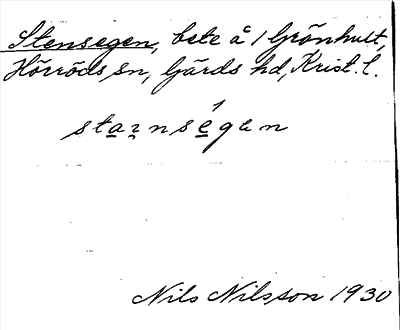 Stensegen, bete å 1 Grönhult,
Hörröds sn, Gärds hd, Krist. l.
staɪnségen
Nils Nilsson 1930